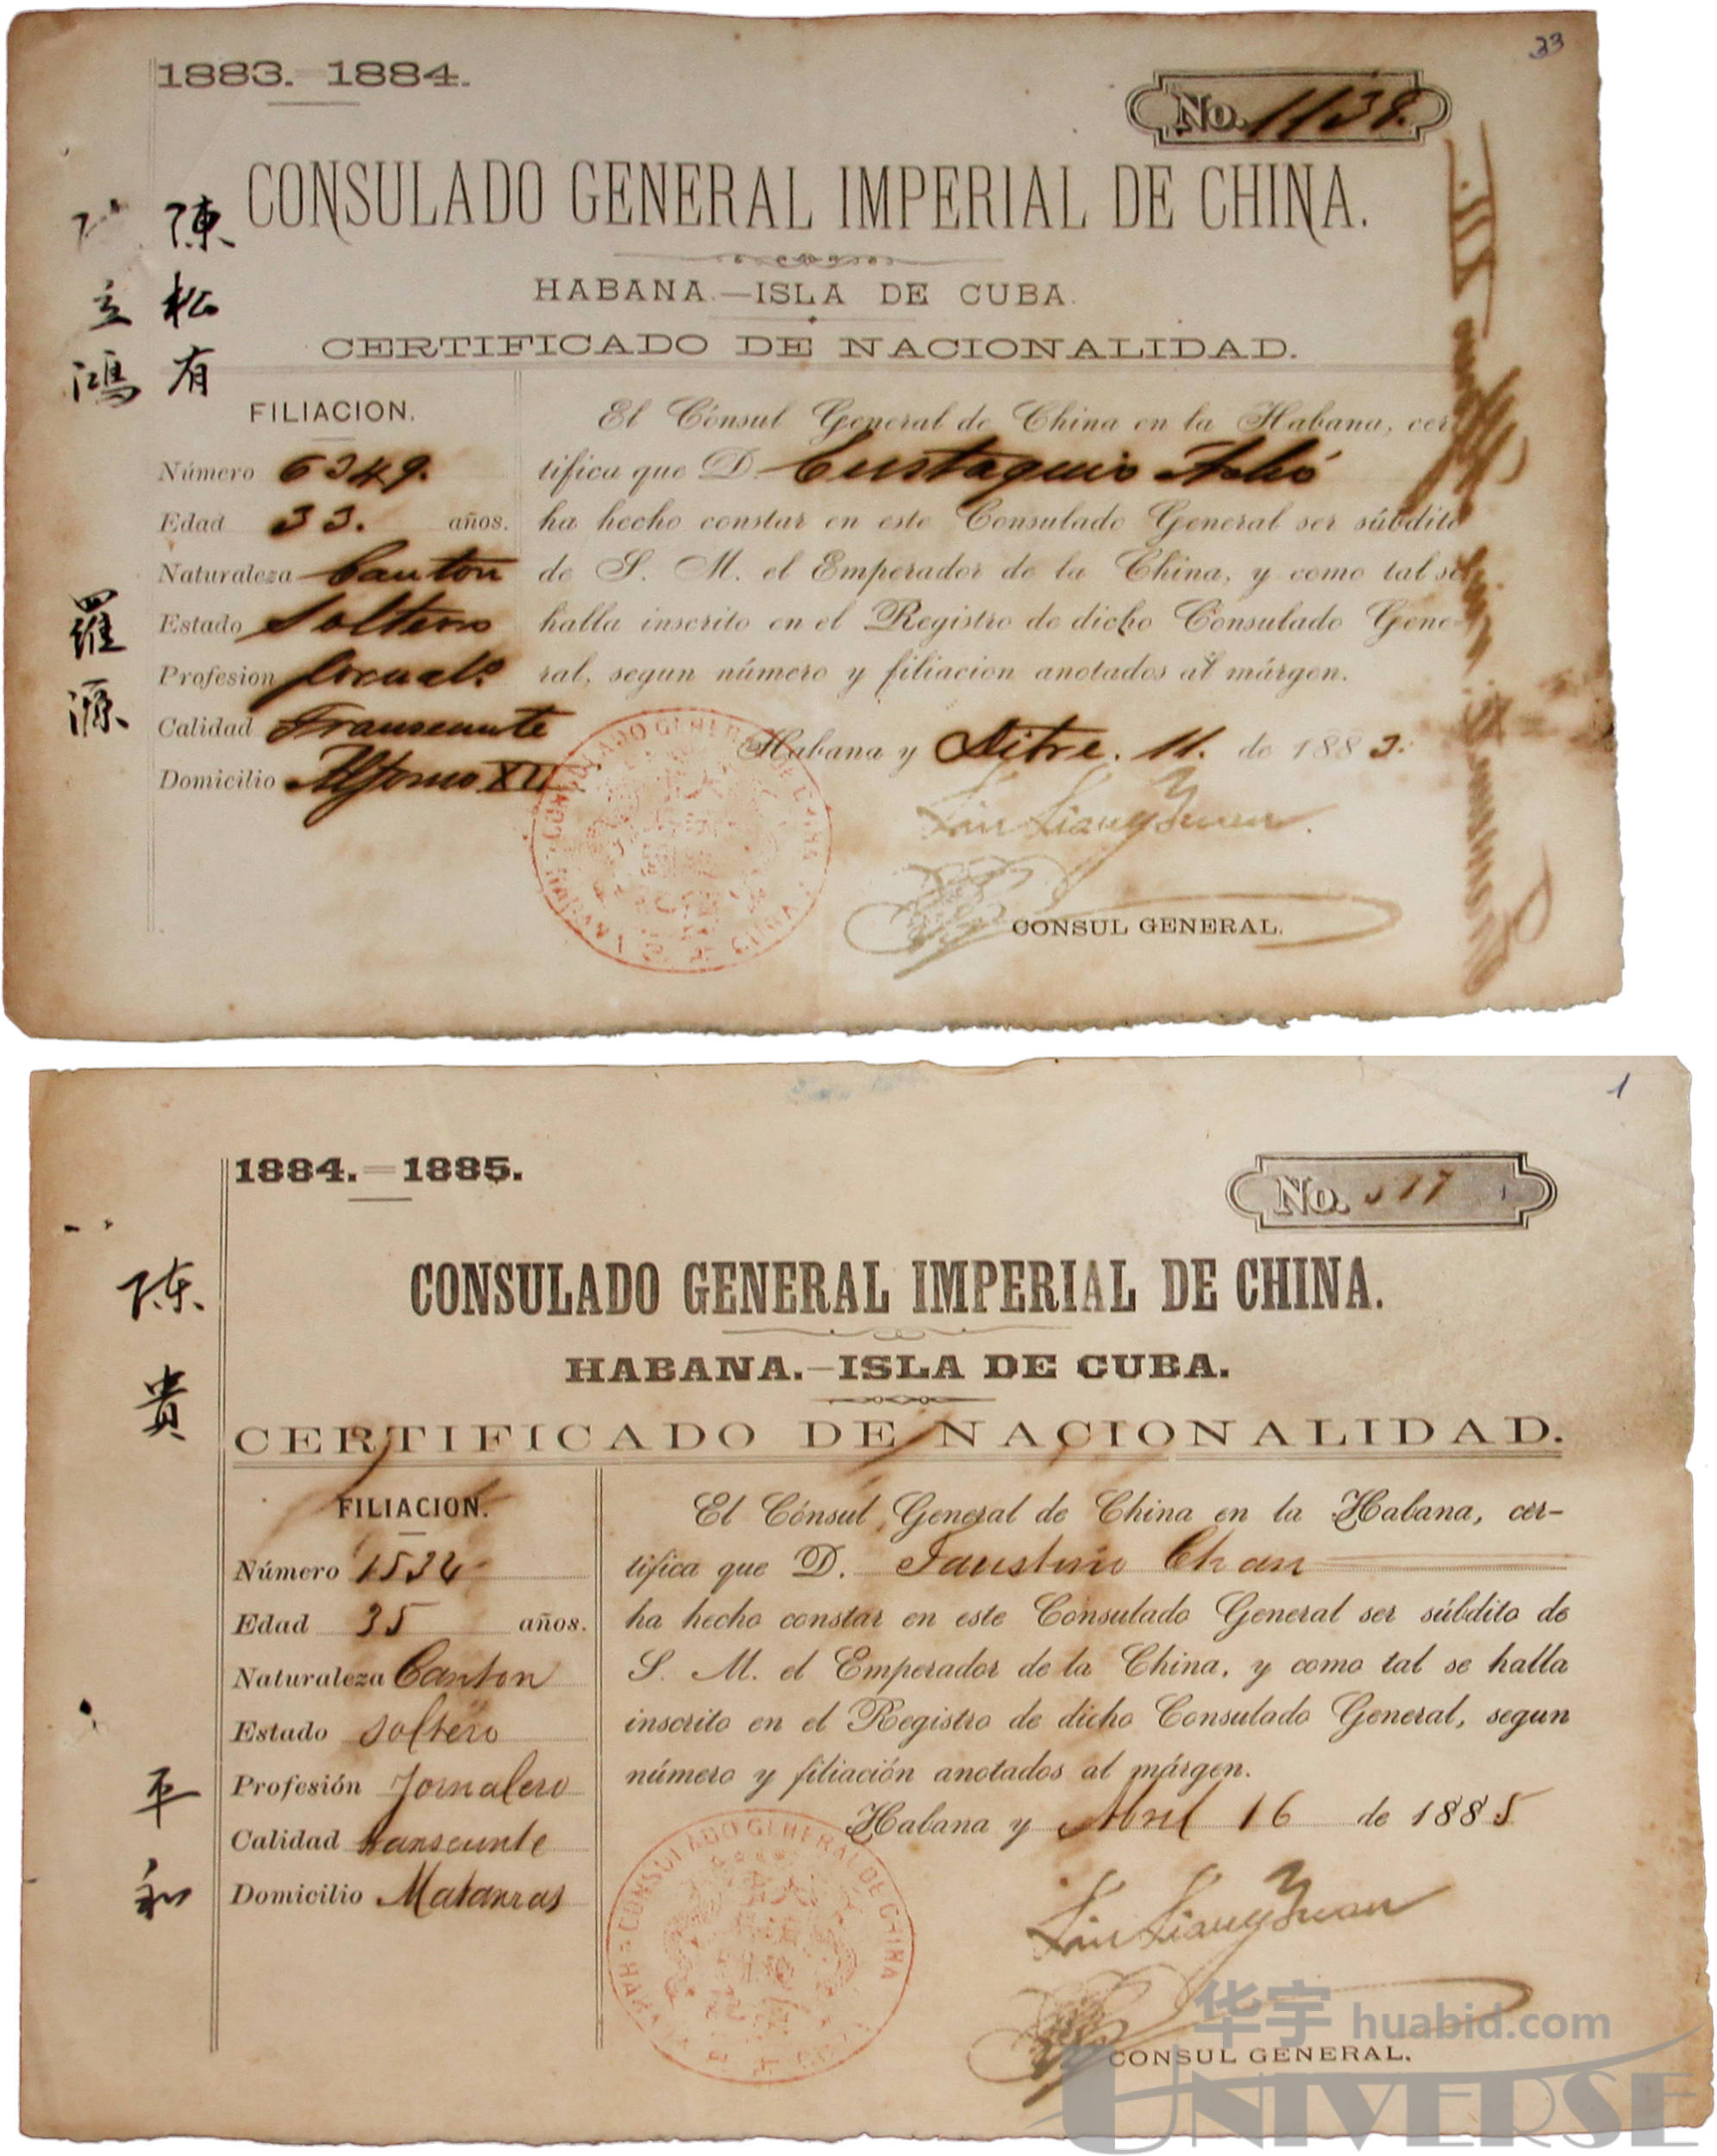 33
1883. 1884.
No. 1138.
CONSULADO GENERAL IMPERIAL DE CHINA.
HABANA.—ISLA DE CUBA.
CERTIFICADO DE NACIONALIDAD.
陳松有
立鴻
羅源
FILIACION.
Número 6349.
Edad 33. años.
Naturaleza Canton
Estado Soltero
Profesion
Calidad Transeunte
Domicilio Alfonso XII
El Cónsul General de China en la Habana, cer-
tifica que D. Eustaquio
ha hecho constar en este Consulado General ser súbdito
de S. M. el Emperador de la China, y como tal se
halla inscrito en el Registro de dicho Consulado Gene-
ral, segun número y filiacion anotados al márgen.
Habana y Dibre. 11. de 1883.
Liu Liang Yuan
CONSUL GENERAL.
CONSULADO GENERAL DE CHINA
HABANA CUBA
1
1884.—1885.
No. 517
CONSULADO GENERAL IMPERIAL DE CHINA.
HABANA.—ISLA DE CUBA.
CERTIFICADO DE NACIONALIDAD.
陈贵
平和
FILIACION.
Número 1534
Edad 35 años.
Naturaleza Canton
Estado soltero
Profesión Jornalero
Calidad transeunte
Domicilio Matanzas
El Cónsul General de China en la Habana, cer-
tifica que D. Faustino Chan
ha hecho constar en este Consulado General ser súbdito de
S. M. el Emperador de la China, y como tal se halla
inscrito en el Registro de dicho Consulado General, segun
número y filiación anotados al márgen.
Habana y Abril 16 de 1885
Liu Liang Yuan
CONSUL GENERAL.
CONSULADO GENERAL DE CHINA
HABANA
华宇 huabid.com
UNIVERSE